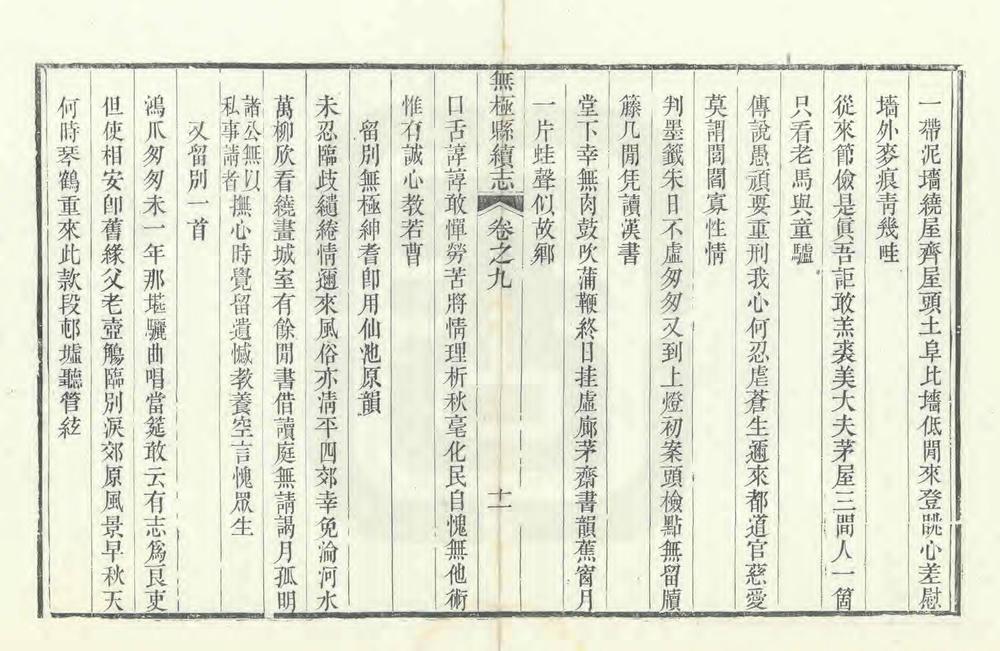 一帶泥墻繞屋齊屋頭土阜比墻低閒來登眺心差慰
墻外麥痕靑幾畦
從來節儉是眞吾詎敢羔裘美大夫茅屋三間人一箇
只看老馬與童驢
傳說愚頑要重刑我心何忍虐蒼生邇來都道官慈愛
莫謂閭閻寡性情
判墨籤朱日不虛匆匆又到上燈初案頭檢點無留牘
籐几閒凭讀漢書
堂下幸無肉鼓吹蒲鞭終日挂虛廊茅齋書韻蕉窗月
一片蛙聲似故鄉
無極縣續志 卷之九 十一
口舌諄諄敢憚勞苦將情理析秋毫化民自愧無他術
惟有誠心教若曹
留別無極紳耆卽用仙池原韻
未忍臨歧繾綣情邇來風俗亦淸平四郊幸免淪河水
萬柳欣看繞畫城室有餘閒書借讀庭無請謁月孤明
諸公無以
私事請者撫心時覺留遺憾教養空言愧眾生
又留別一首
鴻爪匆匆未一年那堪驪曲唱當筵敢云有志爲良吏
但使相安卽舊緣父老壺觴臨別淚郊原風景早秋天
何時琴鶴重來此款段邨墟聽管絃